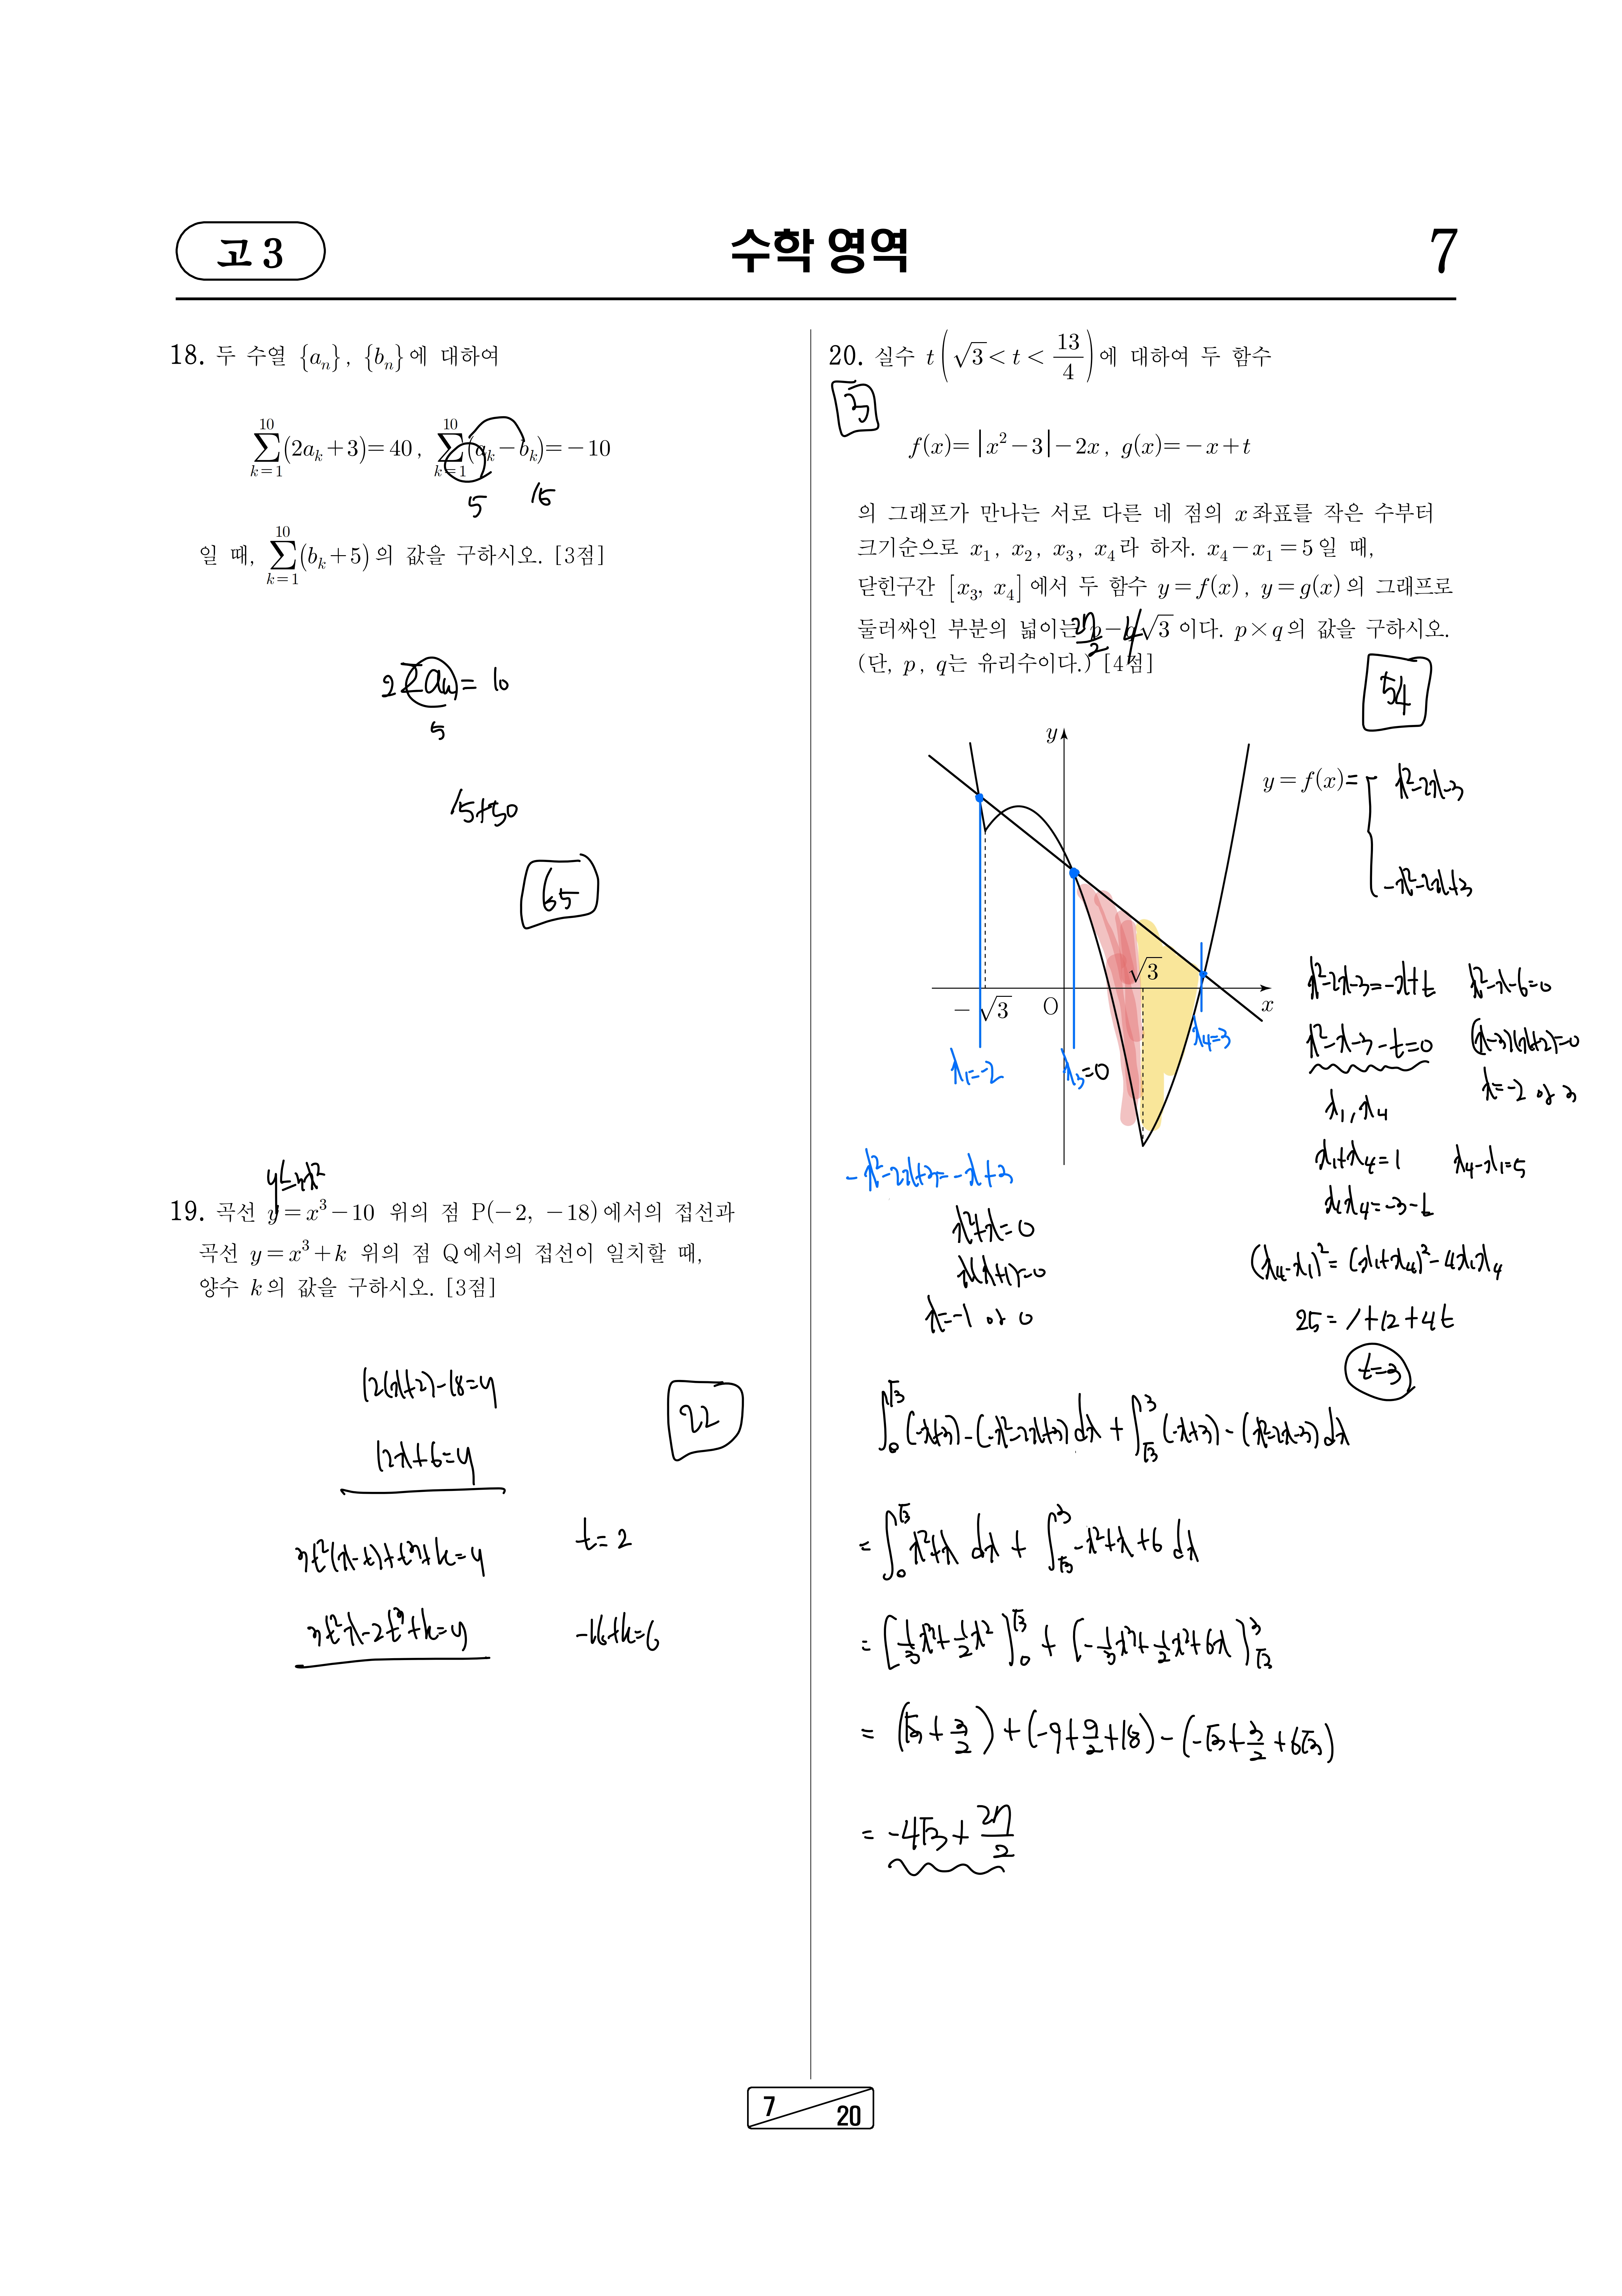 고 3
수학 영역
7
18. 두 수열 {aₙ}, {bₙ}에 대하여
∑_{k=1}^{10}(2aₖ+3)=40, ∑_{k=1}^{10}(aₖ-bₖ)=-10
5 15
일 때, ∑_{k=1}^{10}(bₖ+5)의 값을 구하시오. [3점]
2∑aₖ = 10
5
15+50
65
y'=3x²
19. 곡선 y=x³-10 위의 점 P(-2, -18)에서의 접선과
곡선 y=x³+k 위의 점 Q에서의 접선이 일치할 때,
양수 k의 값을 구하시오. [3점]
12(x+2)-18=y
22
12x+6=y
3t²(x-t)+t³+k=y
t=2
3t²x-2t³+k=y
-16+k=6
20. 실수 t(√3<t<13/4)에 대하여 두 함수
3
f(x)=|x²-3|-2x, g(x)=-x+t
의 그래프가 만나는 서로 다른 네 점의 x좌표를 작은 수부터
크기순으로 x₁, x₂, x₃, x₄라 하자. x₄-x₁=5일 때,
닫힌구간 [x₃, x₄]에서 두 함수 y=f(x), y=g(x)의 그래프로
둘러싸인 부분의 넓이는 p-q√3이다. p×q의 값을 구하시오.
27/2 4
(단, p, q는 유리수이다.) [4점]
54
y
y=f(x)= x²-2x-3
-x²-2x+3
√3
-√3 O x
x₁=-2 x₃=0 x₄=3
x²-2x-3=-x+t x²-x-6=0
x²-x-3-t=0 (x-3)(x+2)=0
x₁, x₄ x=-2 or 3
x₁+x₄=1 x₄-x₁=5
x₁x₄=-3-t
(x₄-x₁)²=(x₁+x₄)²-4x₁x₄
25=1+12+4t
t=3
-x²-2x+3=-x+3
x²+x=0
x(x+1)=0
x=-1 or 0
∫₀^√3 (-x+3)-(-x²-2x+3)dx + ∫_√3^3 (-x+3)-(x²-2x-3)dx
= ∫₀^√3 x²+x dx + ∫_√3^3 -x²+x+6 dx
= [1/3x³+1/2x²]₀^√3 + [-1/3x³+1/2x²+6x]_√3^3
= (√3+3/2)+(-9+9/2+18)-(-√3+3/2+6√3)
= -4√3+27/2
7
20